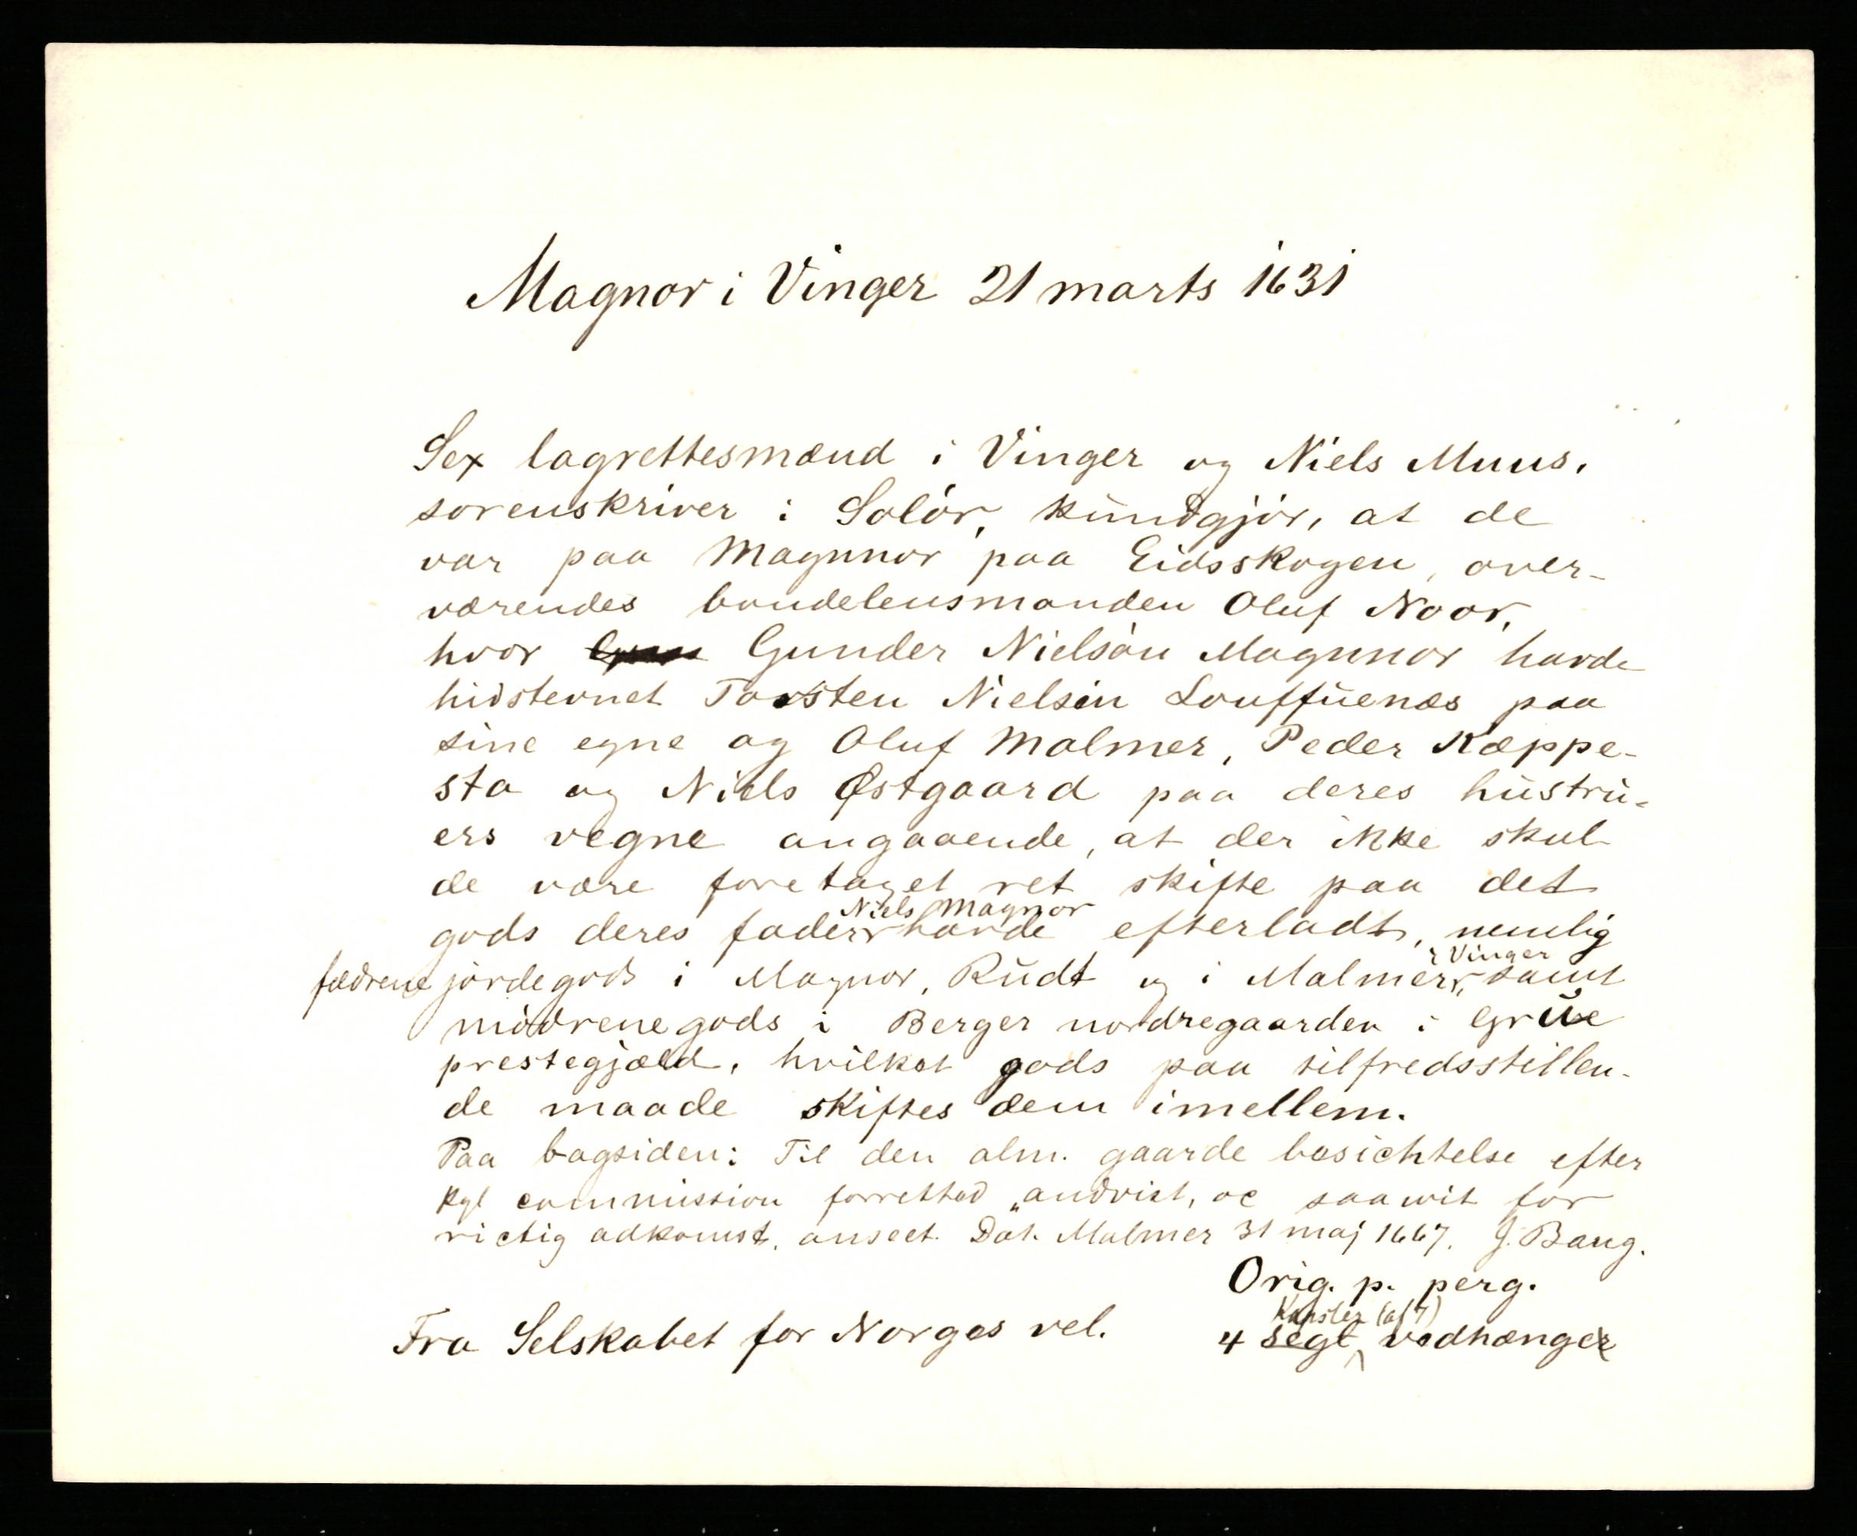 Magnor i Vinger 21 marts 1631
Sex lagrettesmænd i Vinger og Niels Muus,
sorenskriver i Solør, kundgjør, at de
var paa Magnnor paa Eidsskogen, over-
værendes bondelensmanden Oluf Noor,
hvor Gunder Nielsøn Magnnor havde
hidstevnet Torsten Nielsøn Louffuenæs paa
sine egne og Oluf Malmer, Peder Kæppe-
sta og Niels Østgaard paa deres hustru-
ers vegne angaaende, at der ikke skul
de være foretaget ret skifte paa det
Niels Magnor
gods deres fader havde efterladt, nemlig
i Vinger
fædrene jordegods i Magnor, Rudt og i Malmer, samt
mødrenegods i Berger nordregaarden i Grue
prestegjæld, hvilket gods paa tilfredsstillen-
de maade skiftes dem imellem.
Paa bagsiden: Til den alm. gaarde besichtelse efter
kgl commission forretted „andvist, oc saawit for
rictig adkomst, anseet. Dat. Malmer 31 maj 1667. J. Bang.
Orig. p. perg.
(af 7)
4 segl vedhænger
Fra Selskabet for Norges vel.